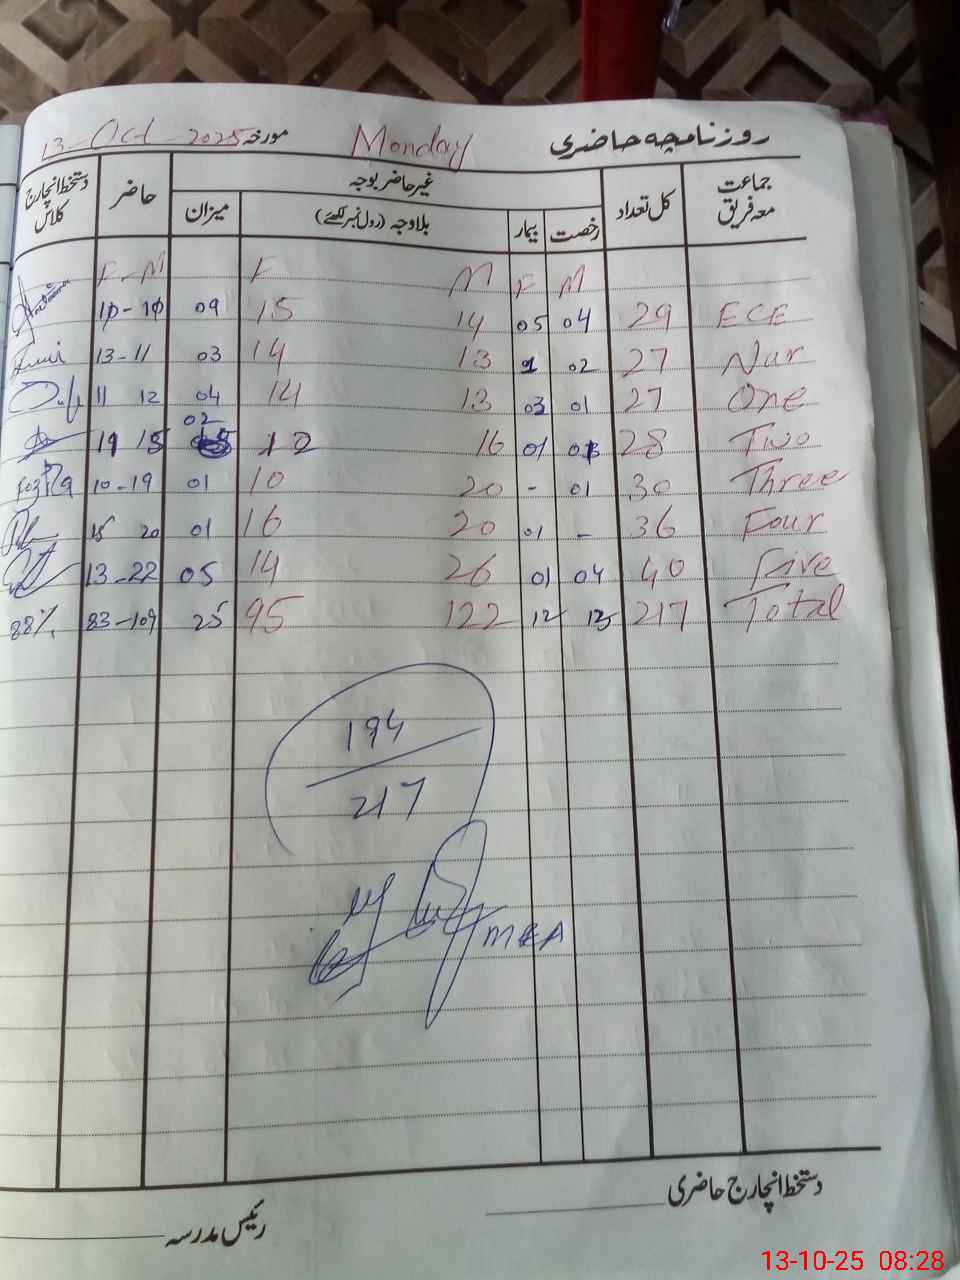 روزنامچہ حاضری Monday مورخہ 13-Oct-2025
جماعت معہ فریق کل تعداد غیر حاضر بوجہ حاضر دستخط انچارج کلاس
رخصت بیمار بلاوجہ (رول نمبر لکھئے) میزان
F-M F M F M
10-10 09 15 14 05 04 29 ECE
13-11 03 14 13 1 02 27 Nur
11 12 04 14 13 03 01 27 One
02
11 15 12 16 01 01 28 Two
10-19 01 10 20 - 01 30 Three
15 20 01 16 20 01 - 36 Four
13-22 05 14 26 01 04 40 Five
88% 83-109 25 95 122 12 13 217 Total
194
217
MEA
دستخط انچارج حاضری
رئیس مدرسہ
13-10-25 08:28